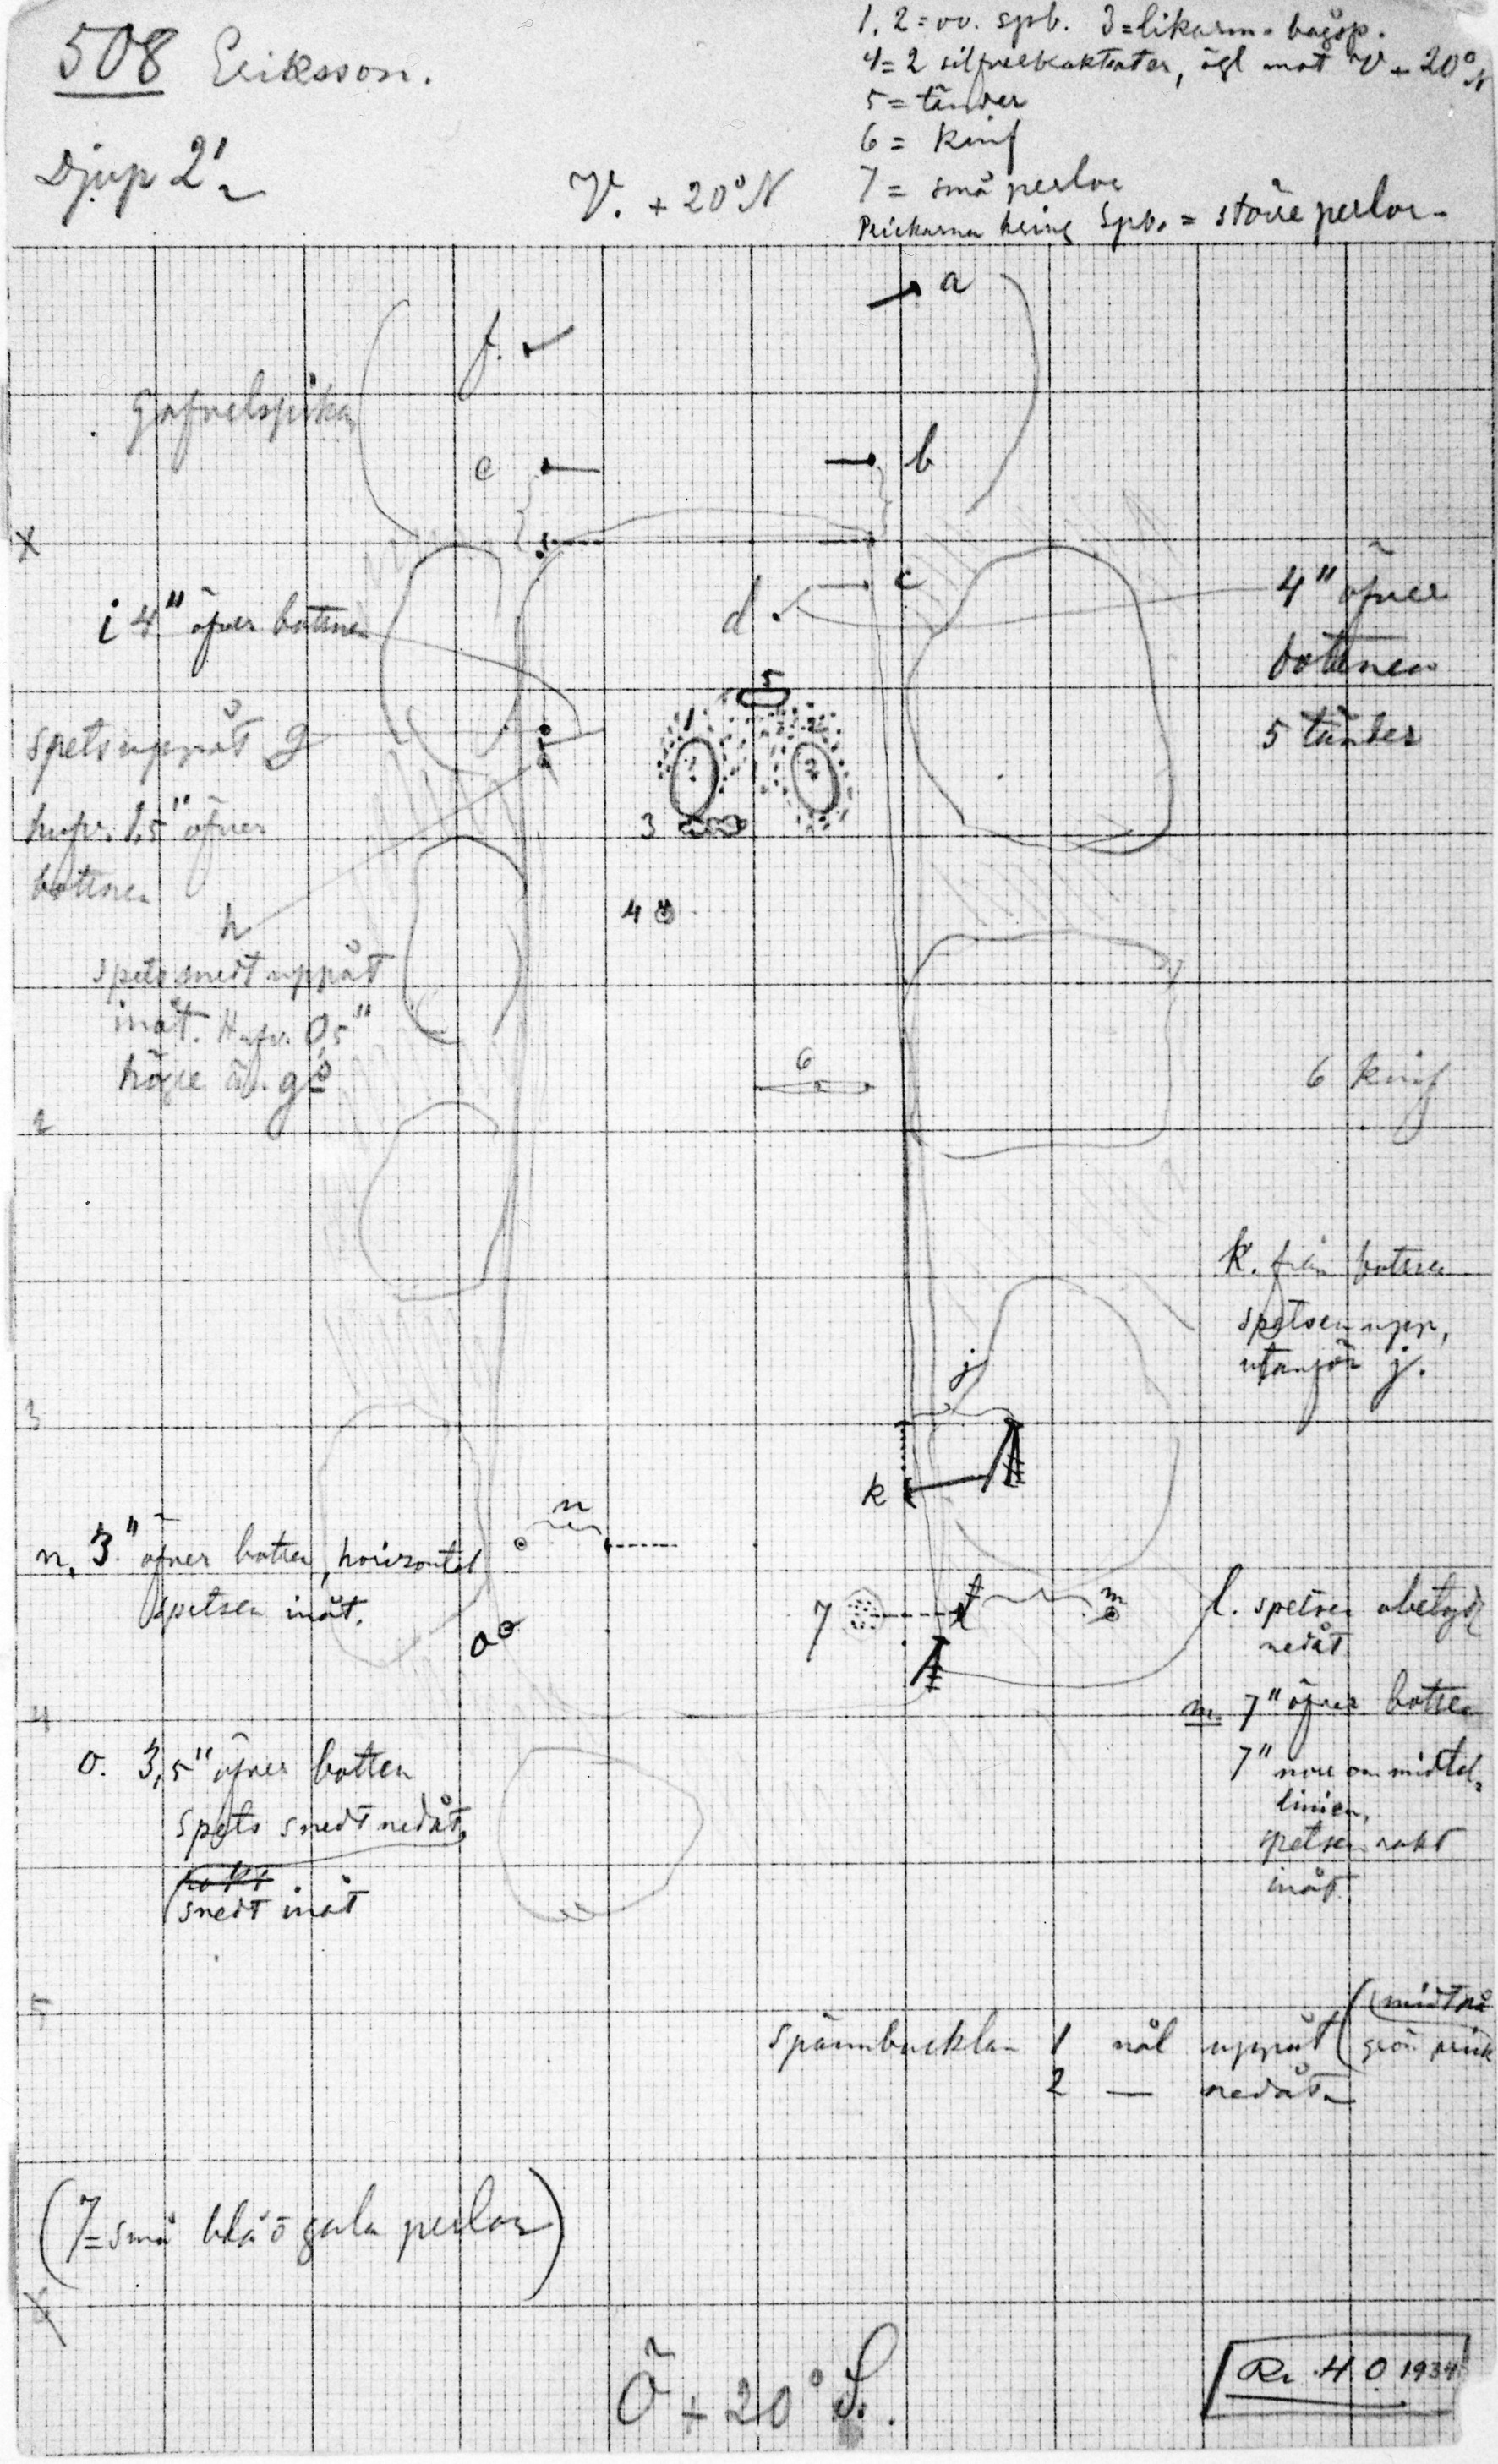 508 Eriksson.
Djup 2'
V. + 20° N
1. 2 = ov. spb. 3 = likarm. bågsp.
4 = 2 silfverkaktatar, ögl mot V + 20° N
5 = tänder
6 = knif
7 = små perlor
Prickarna kring Spb. = större perlor.
a
f.
Gafvelspikar
e
b
x
c
d
i 4" öfver bottnen
4" öfver
bottnen
5 tänder
5
1
2
spets uppåt g
hufv. 1,5" öfver
bottnen
3
4
h
spets snedt uppåt
inåt. Hufv. 0,5"
högre än g
6
6 knif
2
k. från bottnen
spetsen upp,
utanför j.
j
3
k
n
n. 3" öfver botten, horizontel
spetsen inåt.
o
7
l
m
l. spetsen obetydl
nedåt
m. 7" öfver botten
7" norr om midtel-
linien,
spetsen rakt
inåt
4
o. 3,5" öfver botten
spets snedt nedåt,
rakt
snedt inåt
5
spännbucklan 1 nål uppåt (midt på
grön prick
2 — nedåt
(7 = små blå o gula perlor)
x
Ö + 20° S.
Rr. H.O. 1934